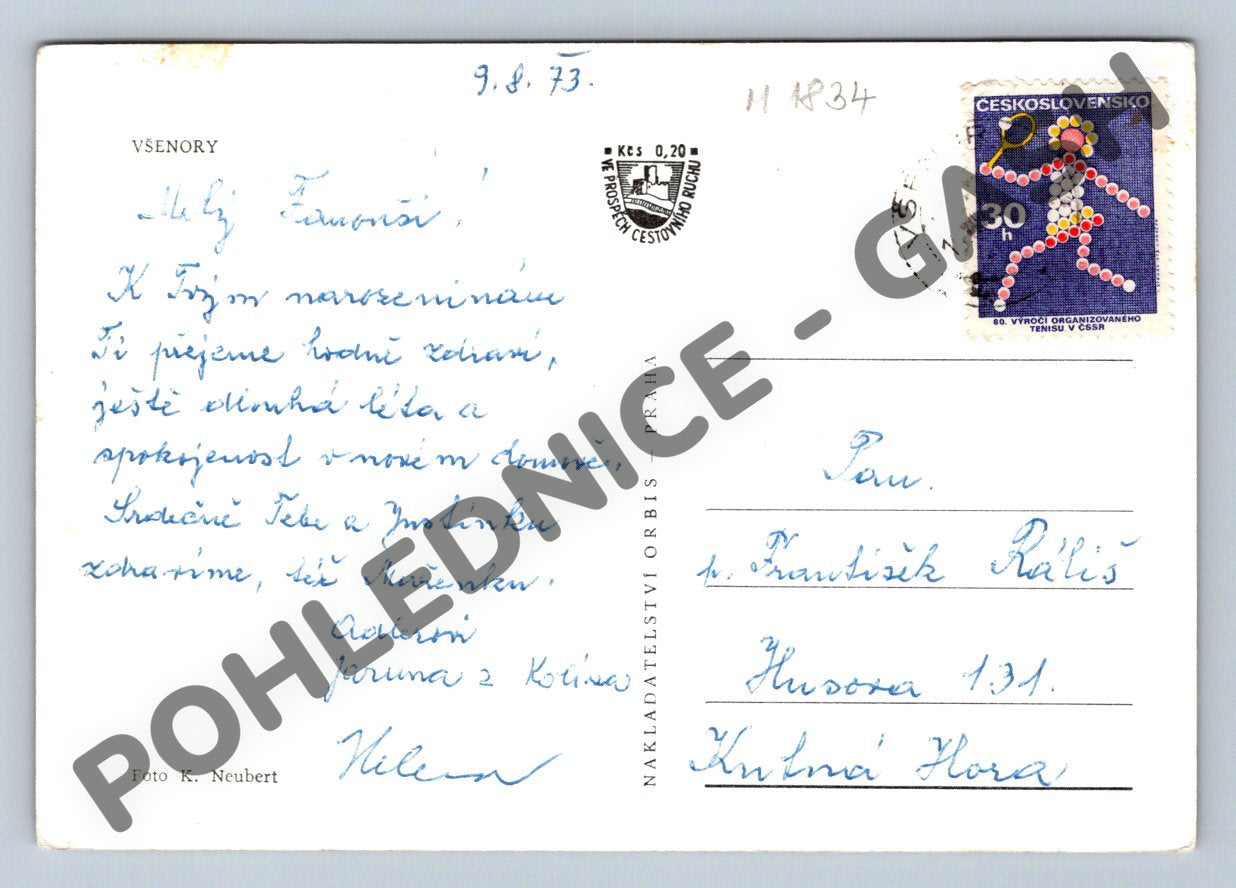 9. 8. 73.
H 1834
ČESKOSLOVENSKO
30
h
80. VÝROČÍ ORGANIZOVANÉHO
TENISU V ČSSR
VŠENORY
Kčs 0,20
VE PROSPĚCH CESTOVNÍHO RUCHU
Milý Fanouši!
K Tvým narozeninám
Ti přejeme hodně zdraví,
ještě dlouhá léta a
spokojenost v novém domově.
Srdečně Tebe a Justinku
zdravíme, též Mařenku.
Adlerovi
Jaruna z Kolína
Helena
Foto K. Neubert
NAKLADATELSTVÍ ORBIS — PRAHA
Pan.
p. František Ráliš
Husova 131.
Kutná Hora
POHLEDNICE - GASH